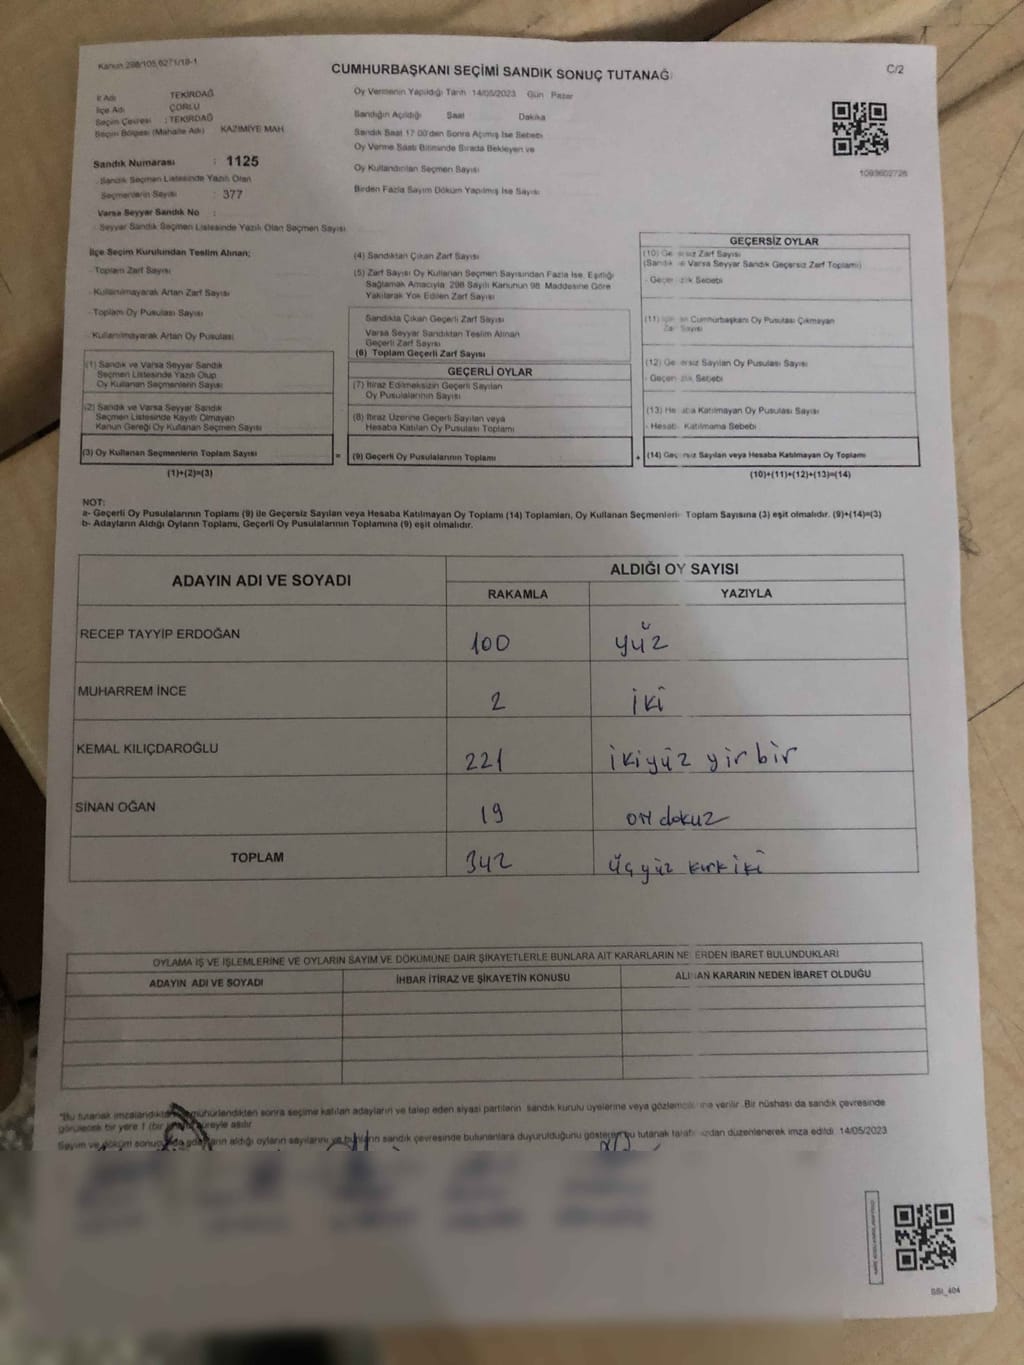 Kanun 298/105,6271/18-1
CUMHURBAŞKANI SEÇİMİ SANDIK SONUÇ TUTANAĞ
C/2
İl Adı TEKİRDAĞ
İlçe Adı ÇORLU
Seçim Çevresi : TEKİRDAĞ
Seçim Bölgesi (Mahalle Adı) KAZIMİYE MAH
Sandık Numarası : 1125
- Sandık Seçmen Listesinde Yazılı Olan
Seçmenlerin Sayısı : 377
Varsa Seyyar Sandık No :
- Seyyar Sandık Seçmen Listesinde Yazılı Olan Seçmen Sayısı
Oy Vermenin Yapıldığı Tarih 14/05/2023 Gün Pazar
Sandığın Açıldığı Saat Dakika
Sandık Saat 17.00'den Sonra Açılmış İse Sebebi
Oy Verme Saati Bitiminde Sırada Bekleyen ve
Oy Kullandırılan Seçmen Sayısı
Birden Fazla Sayım Döküm Yapılmış İse Sayısı
1093602726
İlçe Seçim Kurulundan Teslim Alınan;
- Toplam Zarf Sayısı
- Kullanılmayarak Artan Zarf Sayısı
- Toplam Oy Pusulası Sayısı
- Kullanılmayarak Artan Oy Pusulası
(1) Sandık ve Varsa Seyyar Sandık
Seçmen Listesinde Yazılı Olup
Oy Kullanan Seçmenlerin Sayısı
(2) Sandık ve Varsa Seyyar Sandık
Seçmen Listesinde Kayıtlı Olmayan
Kanun Gereği Oy Kullanan Seçmen Sayısı
(3) Oy Kullanan Seçmenlerin Toplam Sayısı
(1)+(2)=(3)
(4) Sandıktan Çıkan Zarf Sayısı
(5) Zarf Sayısı Oy Kullanan Seçmen Sayısından Fazla İse, Eşitliği
Sağlamak Amacıyla, 298 Sayılı Kanunun 98. Maddesine Göre
Yakılarak Yok Edilen Zarf Sayısı
Sandıkta Çıkan Geçerli Zarf Sayısı
Varsa Seyyar Sandıktan Teslim Alınan
Geçerli Zarf Sayısı
(6) Toplam Geçerli Zarf Sayısı
GEÇERLİ OYLAR
(7) İtiraz Edilmeksizin Geçerli Sayılan
Oy Pusulalarının Sayısı
(8) İtiraz Üzerine Geçerli Sayılan veya
Hesaba Katılan Oy Pusulası Toplamı
= (9) Geçerli Oy Pusulalarının Toplamı
GEÇERSİZ OYLAR
(10) Ge siz Zarf Sayısı
(Sandık Varsa Seyyar Sandık Geçersiz Zarf Toplamı)
- Geçer zlik Sebebi
(11) Cumhurbaşkanı Oy Pusulası Çıkmayan
Sayısı
(12) Ge ersiz Sayılan Oy Pusulası Sayısı
- Geçer zlik Sebebi
(13) He aba Katılmayan Oy Pusulası Sayısı
- Hesab Katılmama Sebebi
+ (14) Geç rsiz Sayılan veya Hesaba Katılmayan Oy Toplamı
(10)+(11)+(12)+(13)=(14)
NOT:
a- Geçerli Oy Pusulalarının Toplamı (9) ile Geçersiz Sayılan veya Hesaba Katılmayan Oy Toplamı (14) Toplamları, Oy Kullanan Seçmenleri Toplam Sayısına (3) eşit olmalıdır. (9)+(14)=(3)
b- Adayların Aldığı Oyların Toplamı, Geçerli Oy Pusulalarının Toplamına (9) eşit olmalıdır.
ADAYIN ADI VE SOYADI
ALDIĞI OY SAYISI
RAKAMLA YAZIYLA
RECEP TAYYİP ERDOĞAN 100 yüz
MUHARREM İNCE 2 iki
KEMAL KILIÇDAROĞLU 221 ikiyüz yirbir
SİNAN OĞAN 19 on dokuz
TOPLAM 342 üçyüz kırk iki
OYLAMA İŞ VE İŞLEMLERİNE VE OYLARIN SAYIM VE DÖKÜMÜNE DAİR ŞİKAYETLERLE BUNLARA AİT KARARLARIN NE ERDEN İBARET BULUNDUKLARI
ADAYIN ADI VE SOYADI
İHBAR İTİRAZ VE ŞİKAYETİN KONUSU
ALI AN KARARIN NEDEN İBARET OLDUĞU
"Bu tutanak imzalandıkta mühürlendikten sonra seçime katılan adayların ve talep eden siyasi partilerin sandık kurulu üyelerine veya gözlemci ine verilir. Bir nüshası da sandık çevresinde
görülecek bir yere 1 (bir) süreyle asılır
Sayım ve döküm adayların aldığı oyların sayılarını ve bunların sandık çevresinde bulunanlara duyurulduğunu gösteren bu tutanak taraf ızdan düzenlenerek imza edildi. 14/05/2023
SSt_404